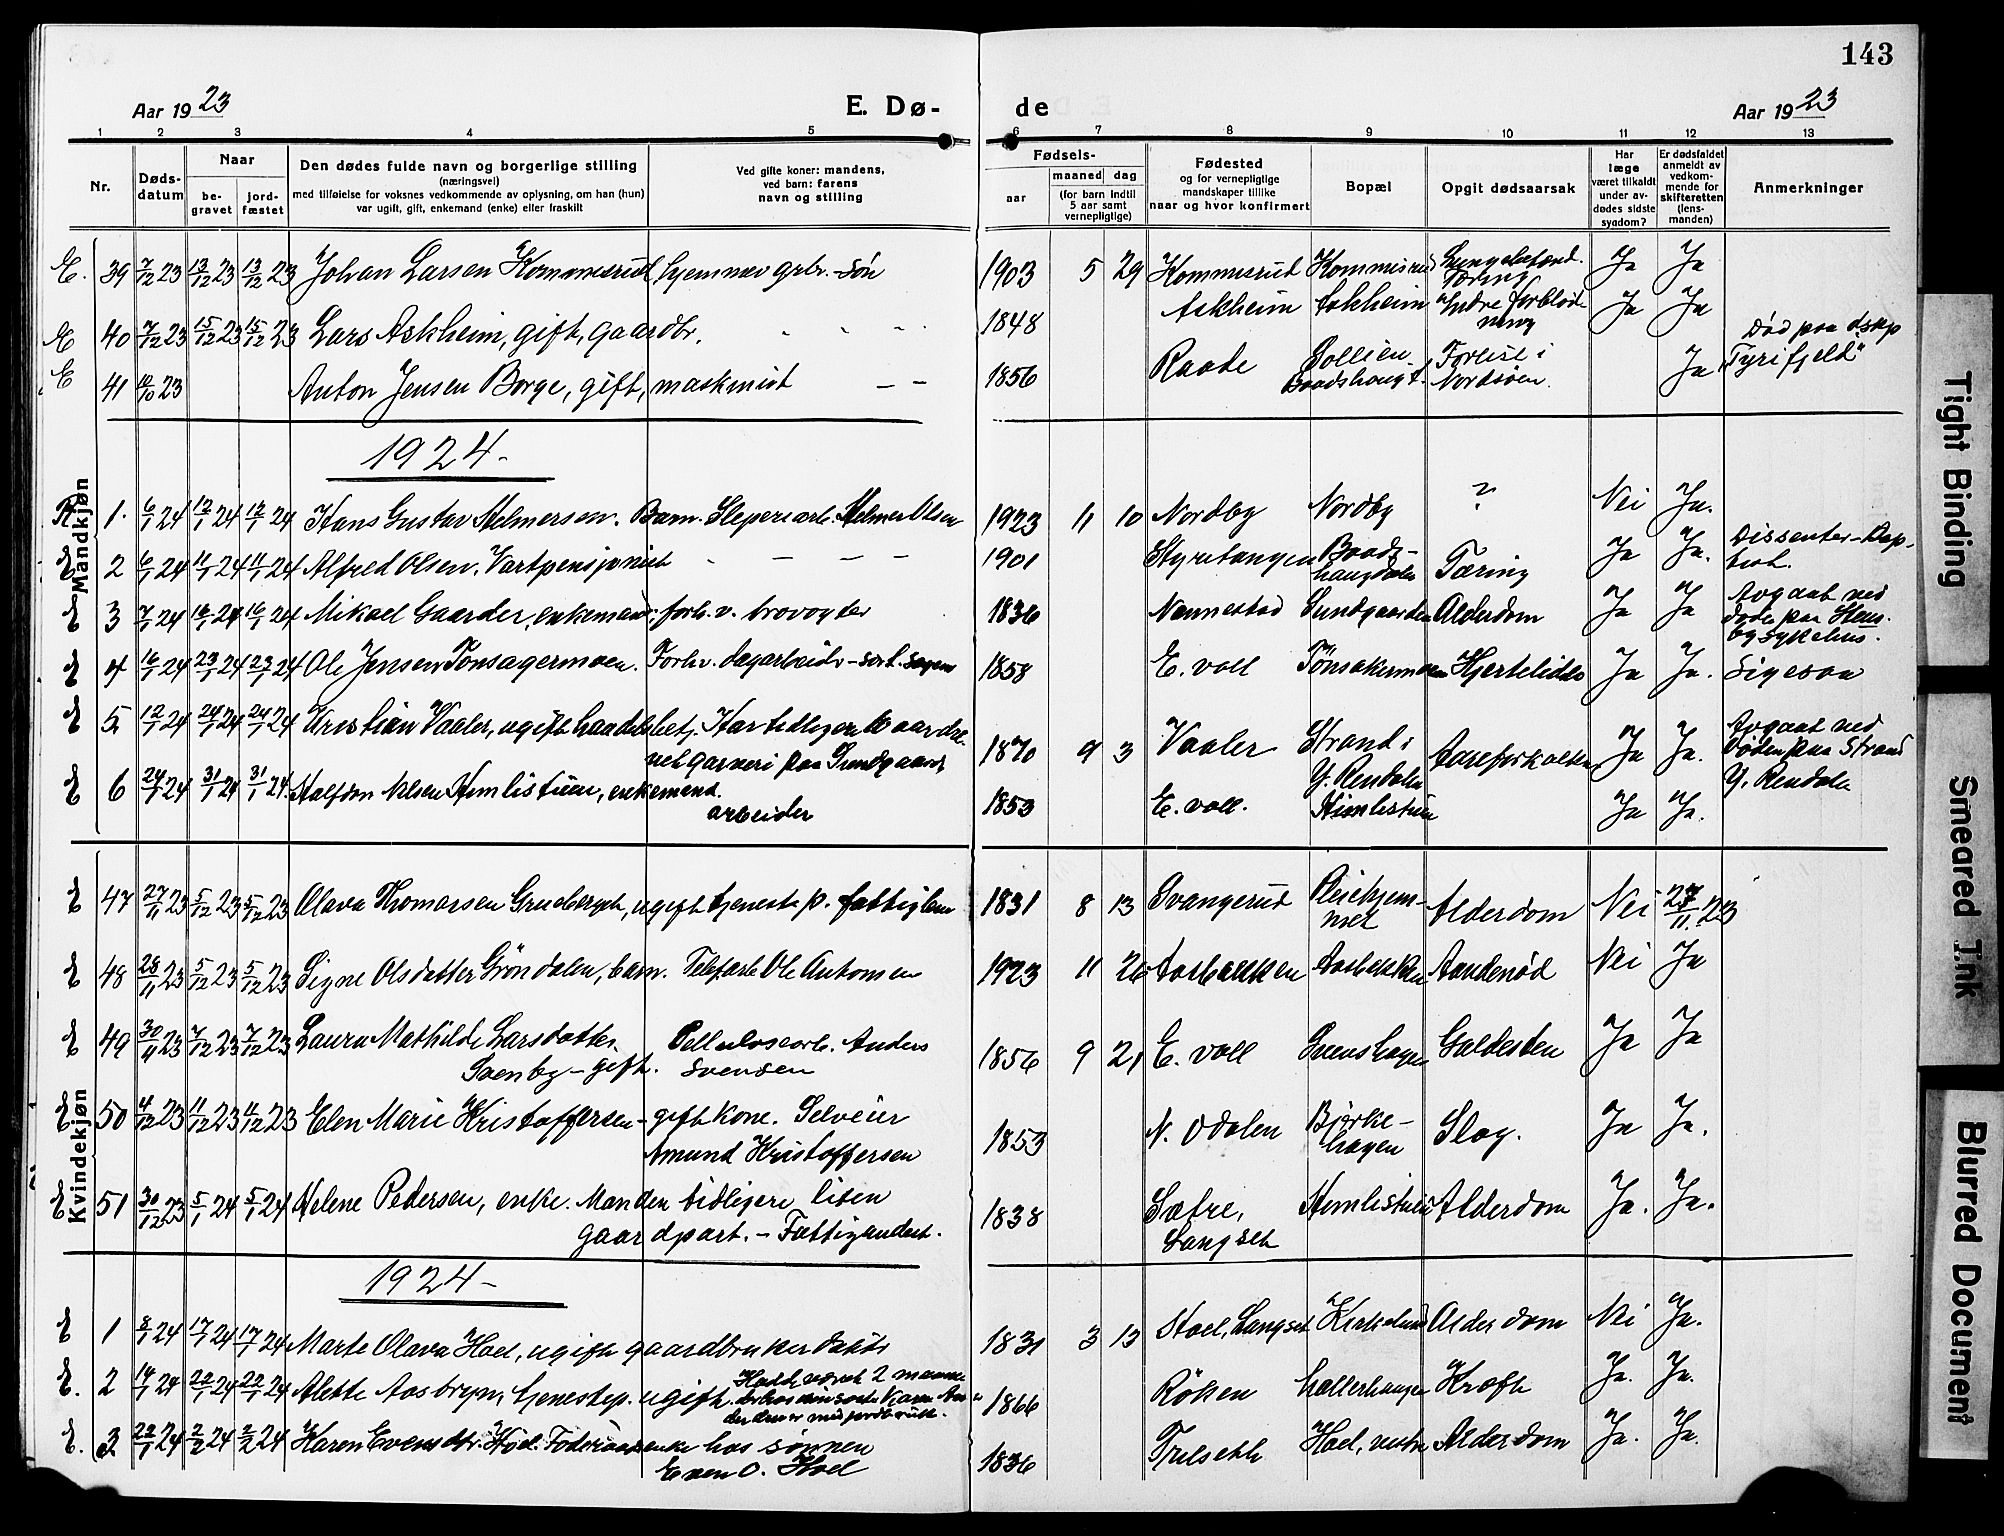 143
Aar 1923
E. Dø-
de
Aar 1923
1 2 3 4 5 6 7 8 9 10 11 12 13
Nr.
Døds-
datum
Naar
be-
gravet
jord-
fæstet
Den dødes fulde navn og borgerlige stilling
(næringsvei)
med tilføielse for voksnes vedkommende av oplysning, om han (hun)
var ugift, gift, enkemand (enke) eller fraskilt
Ved gifte koner: mandens,
ved barn: farens
navn og stilling
Fødsels-
aar
maaned dag
(for barn indtil
5 aar samt
vernepligtige)
Fødested
og for vernepligtige
mandskaper tillike
naar og hvor konfirmert
Bopæl
Opgit dødsaarsak
Har
læge
været tilkaldt
under av-
dødes sidste
sygdom?
Er dødsfaldet
anmeldt av
vedkom-
mende for
skifteretten
(lens-
manden)
Anmerkninger
Mandkjøn
E. 39 7/12 23 13/12 23 13/12 23 Johan Larsen Kommisrud hjemmev. grbr. søn 1903 5 29 Kommisrud Kommisrud Lungebetænd. Tæring Ja Ja
E 40 7/12 23 15/12 23 15/12 23 Lars Askheim, gift, gaardbr. 1848 Askheim Askheim Indre forblød-
ning Ja Ja
E 41 10/10 23 Anton Jensen Borge, gift, maskinist 1856 Raade Sollien
Baadshaugd. Forlist i
Nordsøen. Ja Død paa dskp
"Tyrifjeld"
1924-
1. 6/1 24 12/1 24 12/1 24 Hans Gustav Helmersen. Barn. Sliperiarb. Helmer Olsen 1923 11 10 Nordby Nordby ? Nei Ja.
E 2 6/1 24 11/1 24 11/1 24 Alfred Olsen. Vartpensjonist 1901 Styritangen Baads-
haugdalen Tæring Ja Ja. Dissenter-Bap-
tist.
E 3 7/1 24 16/1 24 16/1 24 Mikael Gaarder, enkemand, forh. v. brovogter 1836 Nannestad Sundgaarden Alderdom Ja Ja Avgaat ved
døde paa Stens-
by Sykehus.
E 4 16/1 24 23/1 24 23/1 24 Ole Jensen Tønsagermoen. Forhv. dagarbeid 1858 E. voll Tønsakermoen Hjertelidelse Ja Ja.
E 5 12/1 24 24/1 24 24/1 24 Kristian Vaaler, ugift handelsbetj. Har tidligere 10 aar dre-
vet garveri paa Sundgaard 1870 9 3 Vaaler Strand i
Y. Rendalen Aareforkalkn. Ja Ja. Avgaat ved
Døden paa Strand
Y. Rendalen
E 6 24/1 24 31/1 24 31/1 24. Halfdan Nilsen Himlistuen, enkemand.
arbeider 1853 E. voll. Himlistuen Ja Ja.
Kvindekjøn
E 47 27/11 23 5/12 23 5/12 23 Olava Thomassen Grueberget, ugift tjenestep. fattiglem 1831 8 13 Svangerud Pleiehjem-
met Alderdom Nei 27/11 23
E 48 28/11 23 5/12 23 5/12 23 Signe Olsdatter Grøndalen, barn. Telefarb. Ole Antonsen 1923 11 26 Aasbakken Aasbakken Aandenød Nei Ja
E 49 30/11 23 7/12 23 7/12 23 Laura Mathilde Larsdatter
Svenby - gift. Cellulosearb. Anders
Svensen 1856 9 21 E. voll Svenshagen Galdesten Ja Ja
E 50 4/12 23 11/12 23 11/12 23 Elen Marie Kristoffersen - gift kone. Selveier
Amund Kristoffersen 1853 N. Odalen Bjørke-
hagen Slag. Ja Ja.
E 51 30/12 23 5/1 24 5/1 24 Helene Pedersen, enke. Manden tidligere liten
gaardpart. - Fattigunderst. 1838 Sætre,
Langset Himlistuen Alderdom Ja. Ja.
1924-
E 1 8/1 24 17/1 24 17/1 24 Marte Olava Hoel, ugift gaardbruker datter 1831 3 13 Hoel, Langset Kirkelund Alderdom Nei Ja.
E. 2 14/1 24 22/1 24 22/1 24 Alette Aasbryn, tjenestep. ugift. 1866 Røken Hallerhaugen Kræft Ja. Ja.
E. 3 22/1 24 2/2 24 2/2 24 Karen Evensdtr. Hoel. Føderaadsenke hos sønnen
Even O. Hoel 1836 Trulsekk Hoel, vestre Alderdom Ja. Ja.
Tight Binding
Smeared Ink
Blurred Document